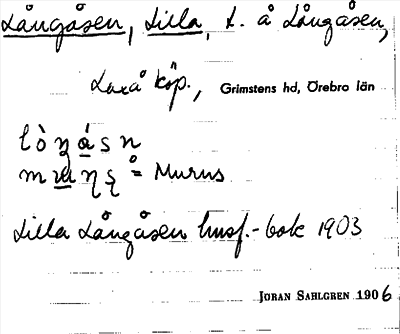 Långåsen, Lilla, t. å Långåsen,
Laxå köp., Grimstens hd, Örebro län
lò ŋ á s n
= Murus
Lilla Långåsen husf.-bok 1903
JÖRAN SAHLGREN 1906